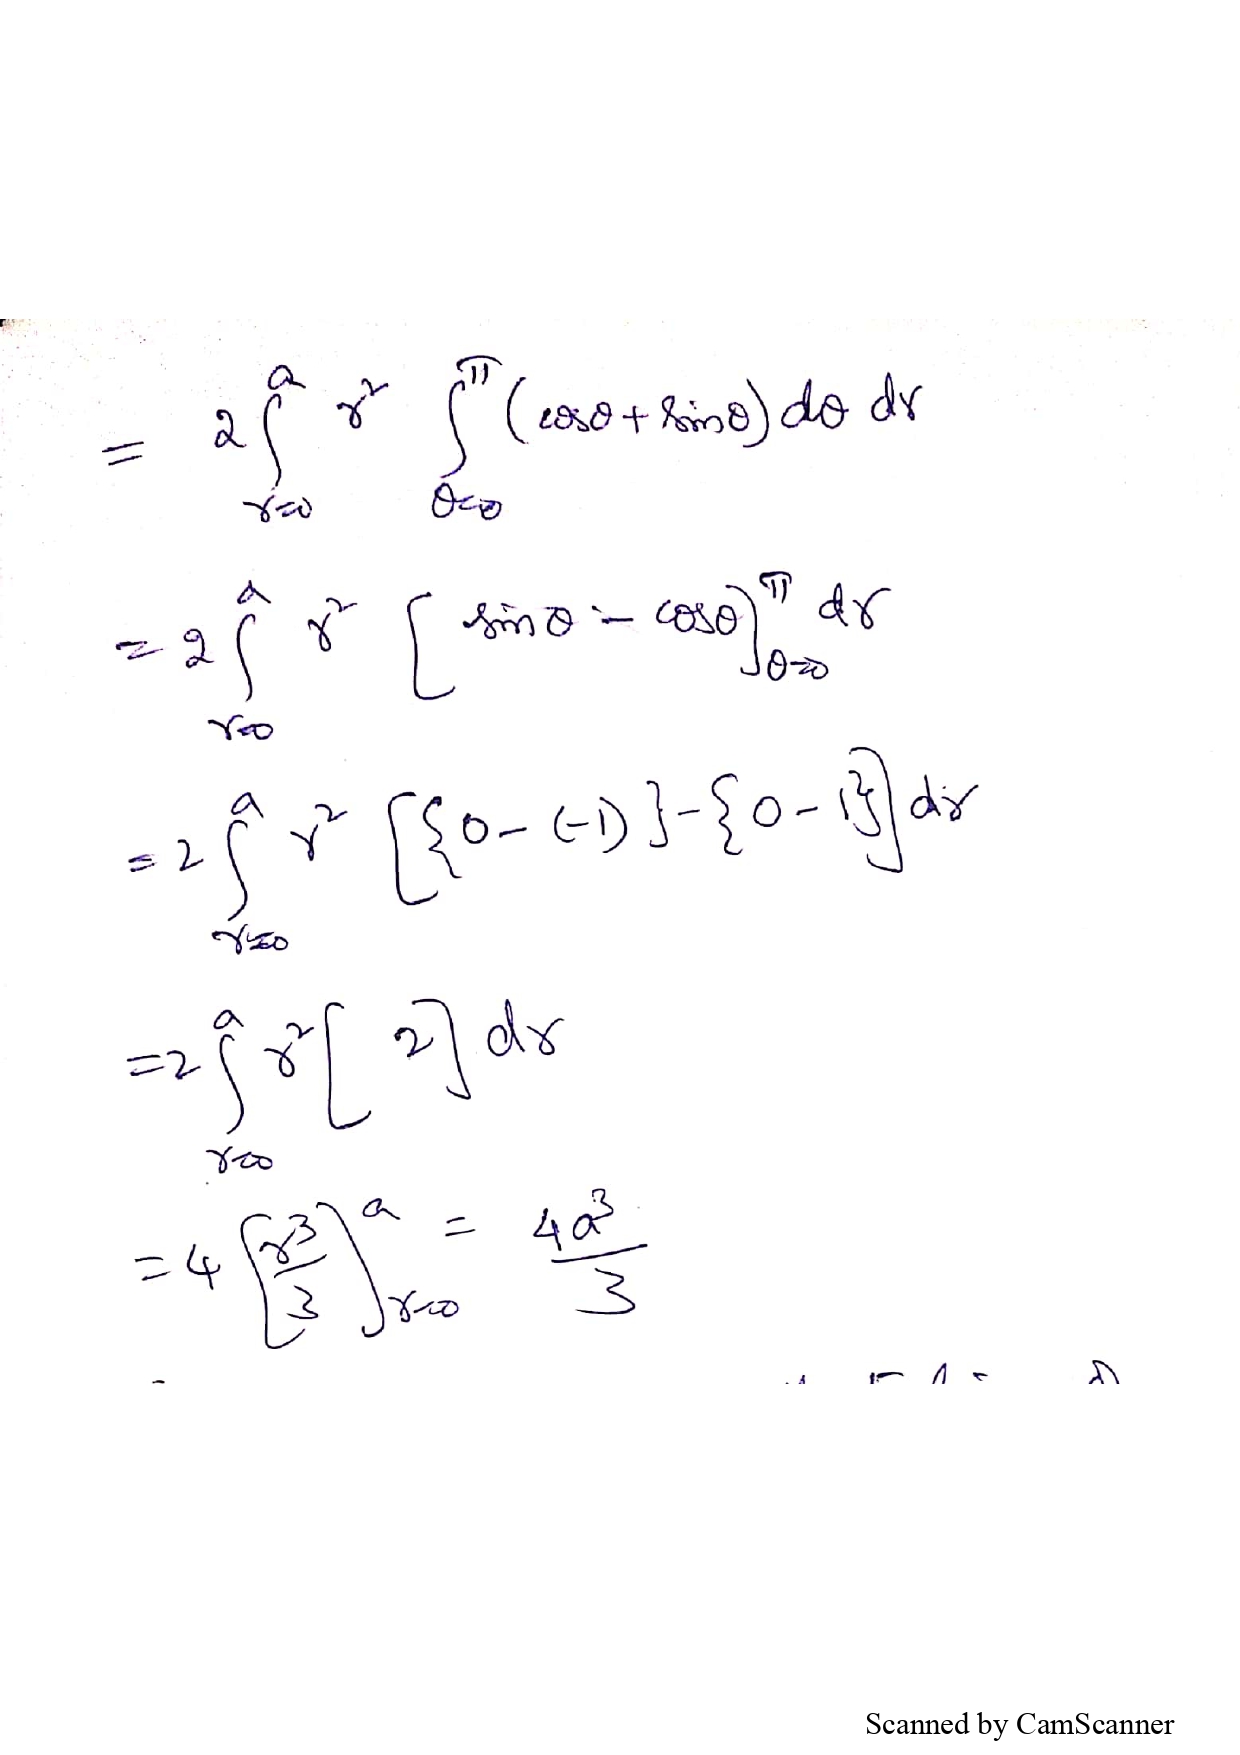 = 2 ∫_{r=0}^{a} r² ∫_{θ=0}^{π} (cosθ + sinθ) dθ dr
= 2 ∫_{r=0}^{a} r² [ sinθ - cosθ ]_{θ=0}^{π} dr
= 2 ∫_{r=0}^{a} r² [{0-(-1)}-{0-1}] dr
= 2 ∫_{r=0}^{a} r² [ 2 ] dr
= 4 [ r³/3 ]_{r=0}^{a} = 4a³/3
Scanned by CamScanner